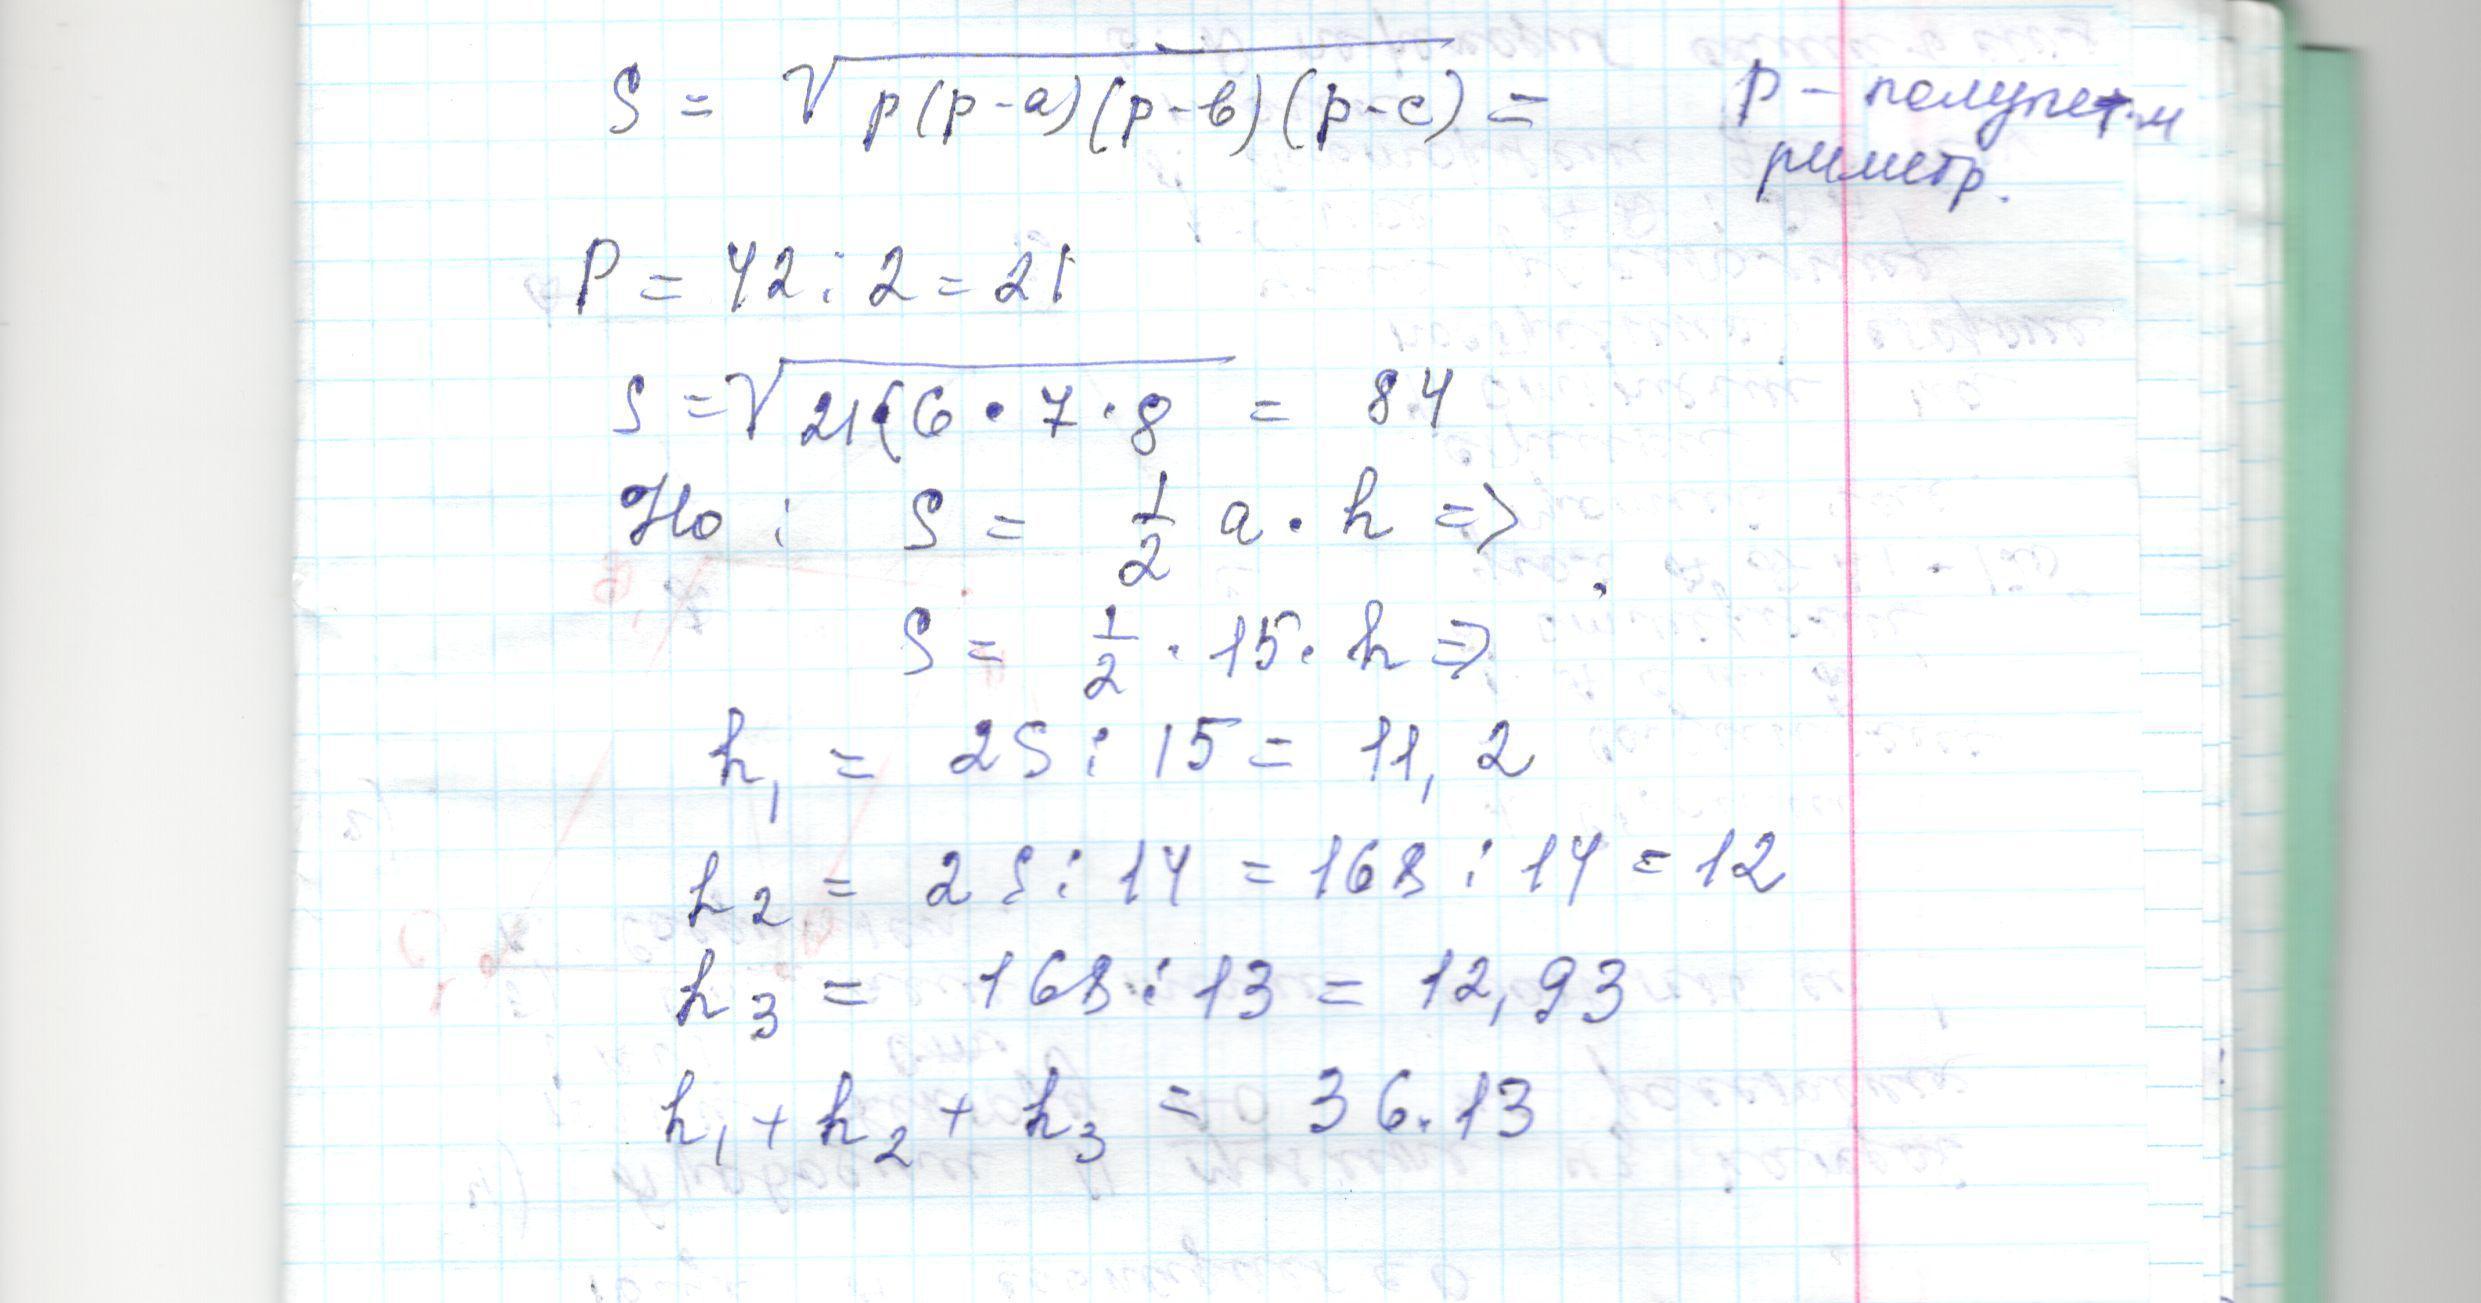 S = √p(p-a)(p-в)(p-c) =
p - полупе
риметр.
P = 42 : 2 = 21
S = √21(6 · 7 · 8 = 84
Но : S = 1/2 a · h =>
S = 1/2 · 15 · h =>
h₁ = 2S : 15 = 11,2
h₂ = 2S : 14 = 168 : 14 = 12
h₃ = 168 : 13 = 12,93
h₁ + h₂ + h₃ = 36.13